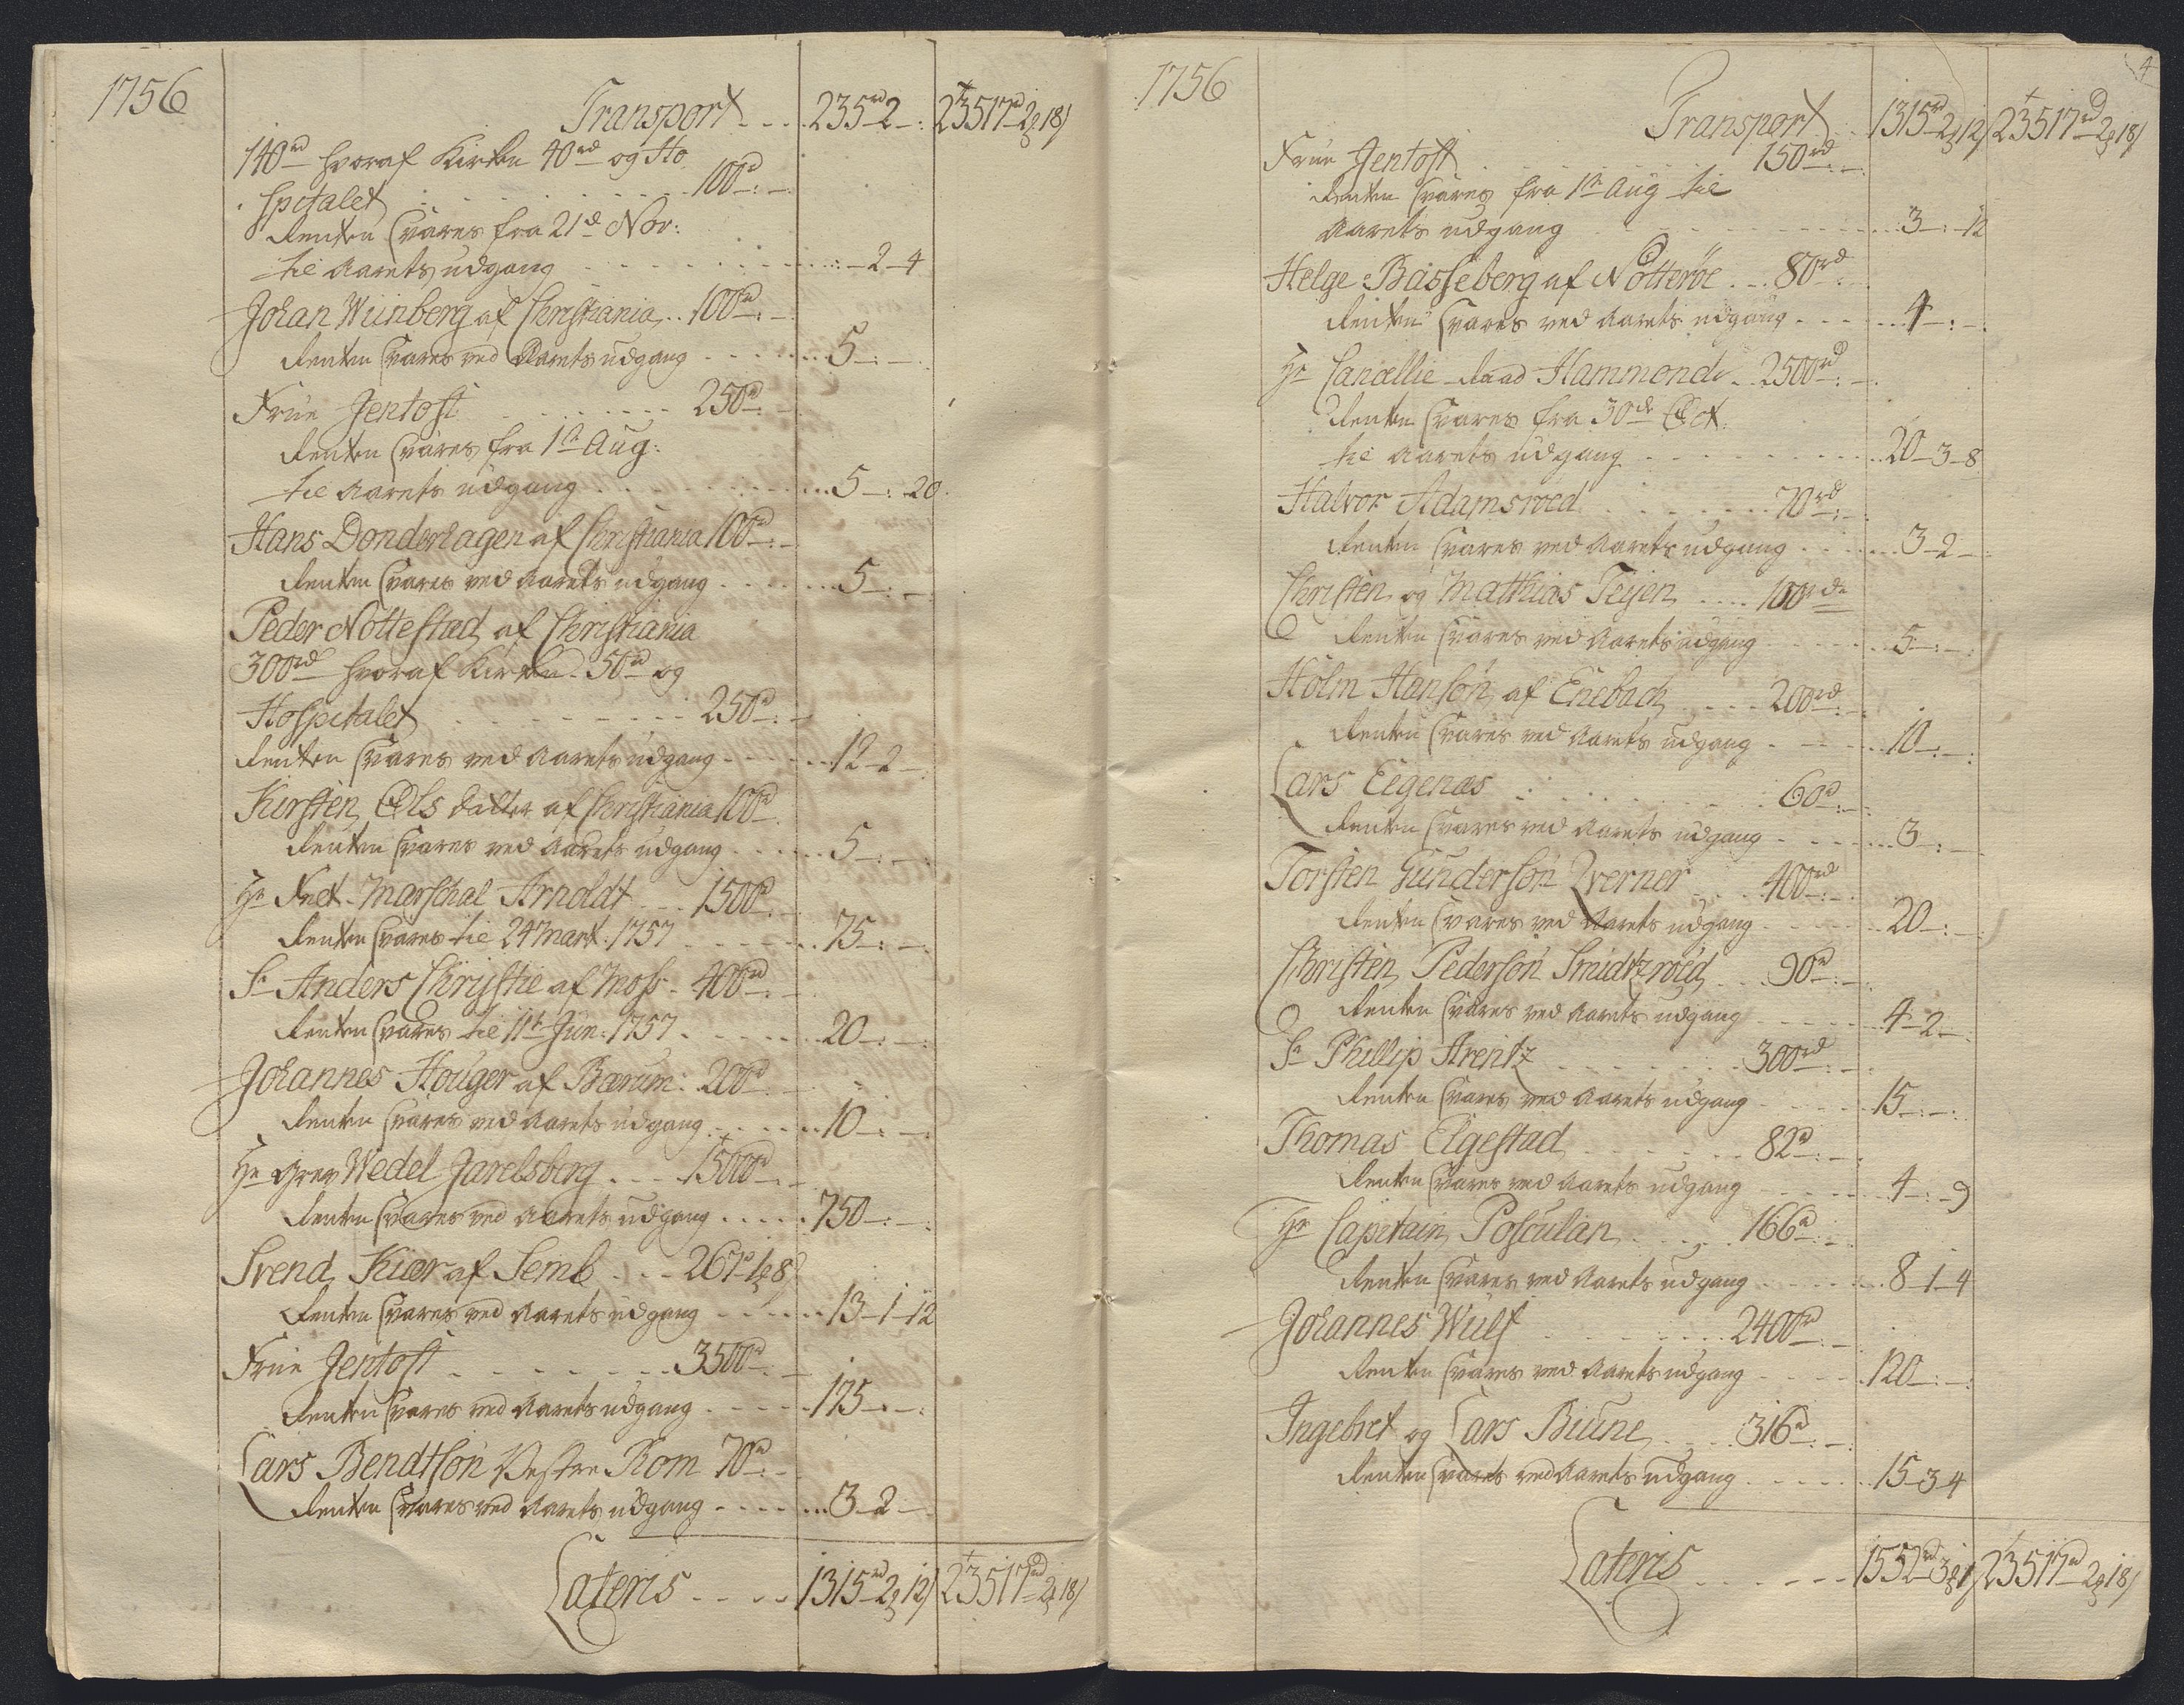 1756
Transport . . . 235rd 2 - : 23517rd 2ȝ 18ſ
140rd hvoraf Kirken 40rd og Ho
spitalet . . . 100rd : -
Renten svares fra 21d Nov:
til Aarets udgang . . . : - 2 - 4
Johan Wünberg af Christiania . . 100rd : -
Renten svares ved Aarets udgang . . . 5 - : -
Frue Jentoft . . . 250rd : -
Renten svares fra 1te Aug:
til Aarets udgang . . . 5 - : 20
Hans Donderhagen af Christiania 100rd : -
Renten svares ved Aarets udgang . . . 5 - : -
Peder Nøttestad af Christiania
300rd hvoraf Kirken 50rd og
Hospitalet . . . 250rd : -
Renten svares ved Aarets udgang . . . 12 - 2 -
Kirsten Ols datter af Christiania 100rd
Renten svares ved Aarets udgang . . . 5 - : -
Hr Felt-Marschal Arnoldt . . . 1500rd : -
Renten svares til 24 Mart: 1757 . . . 75 - : -
Sr Anders Chrystie af Moss - 400rd : -
Renten svares til 11t Jun: 1757 . . . 20 - : -
Johannes Houger af Bærum: 200rd : -
Renten svares ved Aarets udgang . . . 10 - : -
Hr Grev Wedel Jarelsberg . . . 15000rd : -
Renten svares ved Aarets udgang . . . 750 - : -
Svend Kiær af Semb . . . 267rd 1ȝ 8ſ
Renten svares ved Aarets udgang . . . 13 - 1 - 12
Frue Jentoft . . . 3500rd : -
Renten svares ved Aarets udgang . . . 175 - : -
Lars Bendtsøn Vestre Rom 70rd : -
Renten svares ved Aarets udgang . . . 3 - 2 -
Lateris . . . 1315rd 2ȝ 12ſ 23517rd 2ȝ 18ſ
4
1756
Transport . . . 1315rd 2ȝ 12ſ 23517rd 2ȝ 18ſ
Frue Jentoft . . . 150rd : -
Renten svares fra 1te Aug til
Aarets udgang . . . 3 - : 12
Helge Basseberg af Nøtterøe . . . 80rd : -
Renten svares ved Aarets udgang . . . 4 - : -
Hr Cancellie-Raad Hammond . . 2500rd : -
Renten svares fra 30de Oct.
til Aarets udgang . . . 20 - 3 - 8
Halvor Adamsroed . . . 70rd : -
Renten svares ved Aarets udgang . . . 3 - 2 -
Christen og Mathias Teyen . . . 100rd
Renten svares ved Aarets udgang . . . 5 - : -
Holm Hansøn af Enebach . . . 200rd : -
Renten svares ved Aarets udgang . . . 10 - : -
Lars Eegenæs . . . 60rd : -
Renten svares ved Aarets udgang . . . 3 - : -
Torsten Gundersøn Qverner . . . 400rd : -
Renten svares ved Aarets udgang . . . 20 - : -
Christen Pedersøn Smidtzroed . . . 90rd : -
Renten svares ved Aarets udgang . . . 4 - 2 -
Sr Phillip Arentz . . . 300rd : -
Renten svares ved Aarets udgang . . . 15 - : -
Thomas Elgestad . . . 82rd : -
Renten svares ved Aarets udgang . . . 4 - : - 9
Hr Capitain Posculan . . . 166rd : -
Renten svares ved Aarets udgang . . . 8 - 1 - 4
Johannes Wulf . . . 2400rd : -
Renten svares ved Aarets udgang . . . 120 - : -
Ingebret og Lars Biune . . . 316rd : -
Renten svares ved Aarets udgang . . . 15 - 3 4
Lateris . . . 1552rd 3ȝ 1ſ 23517rd 2ȝ 18ſ